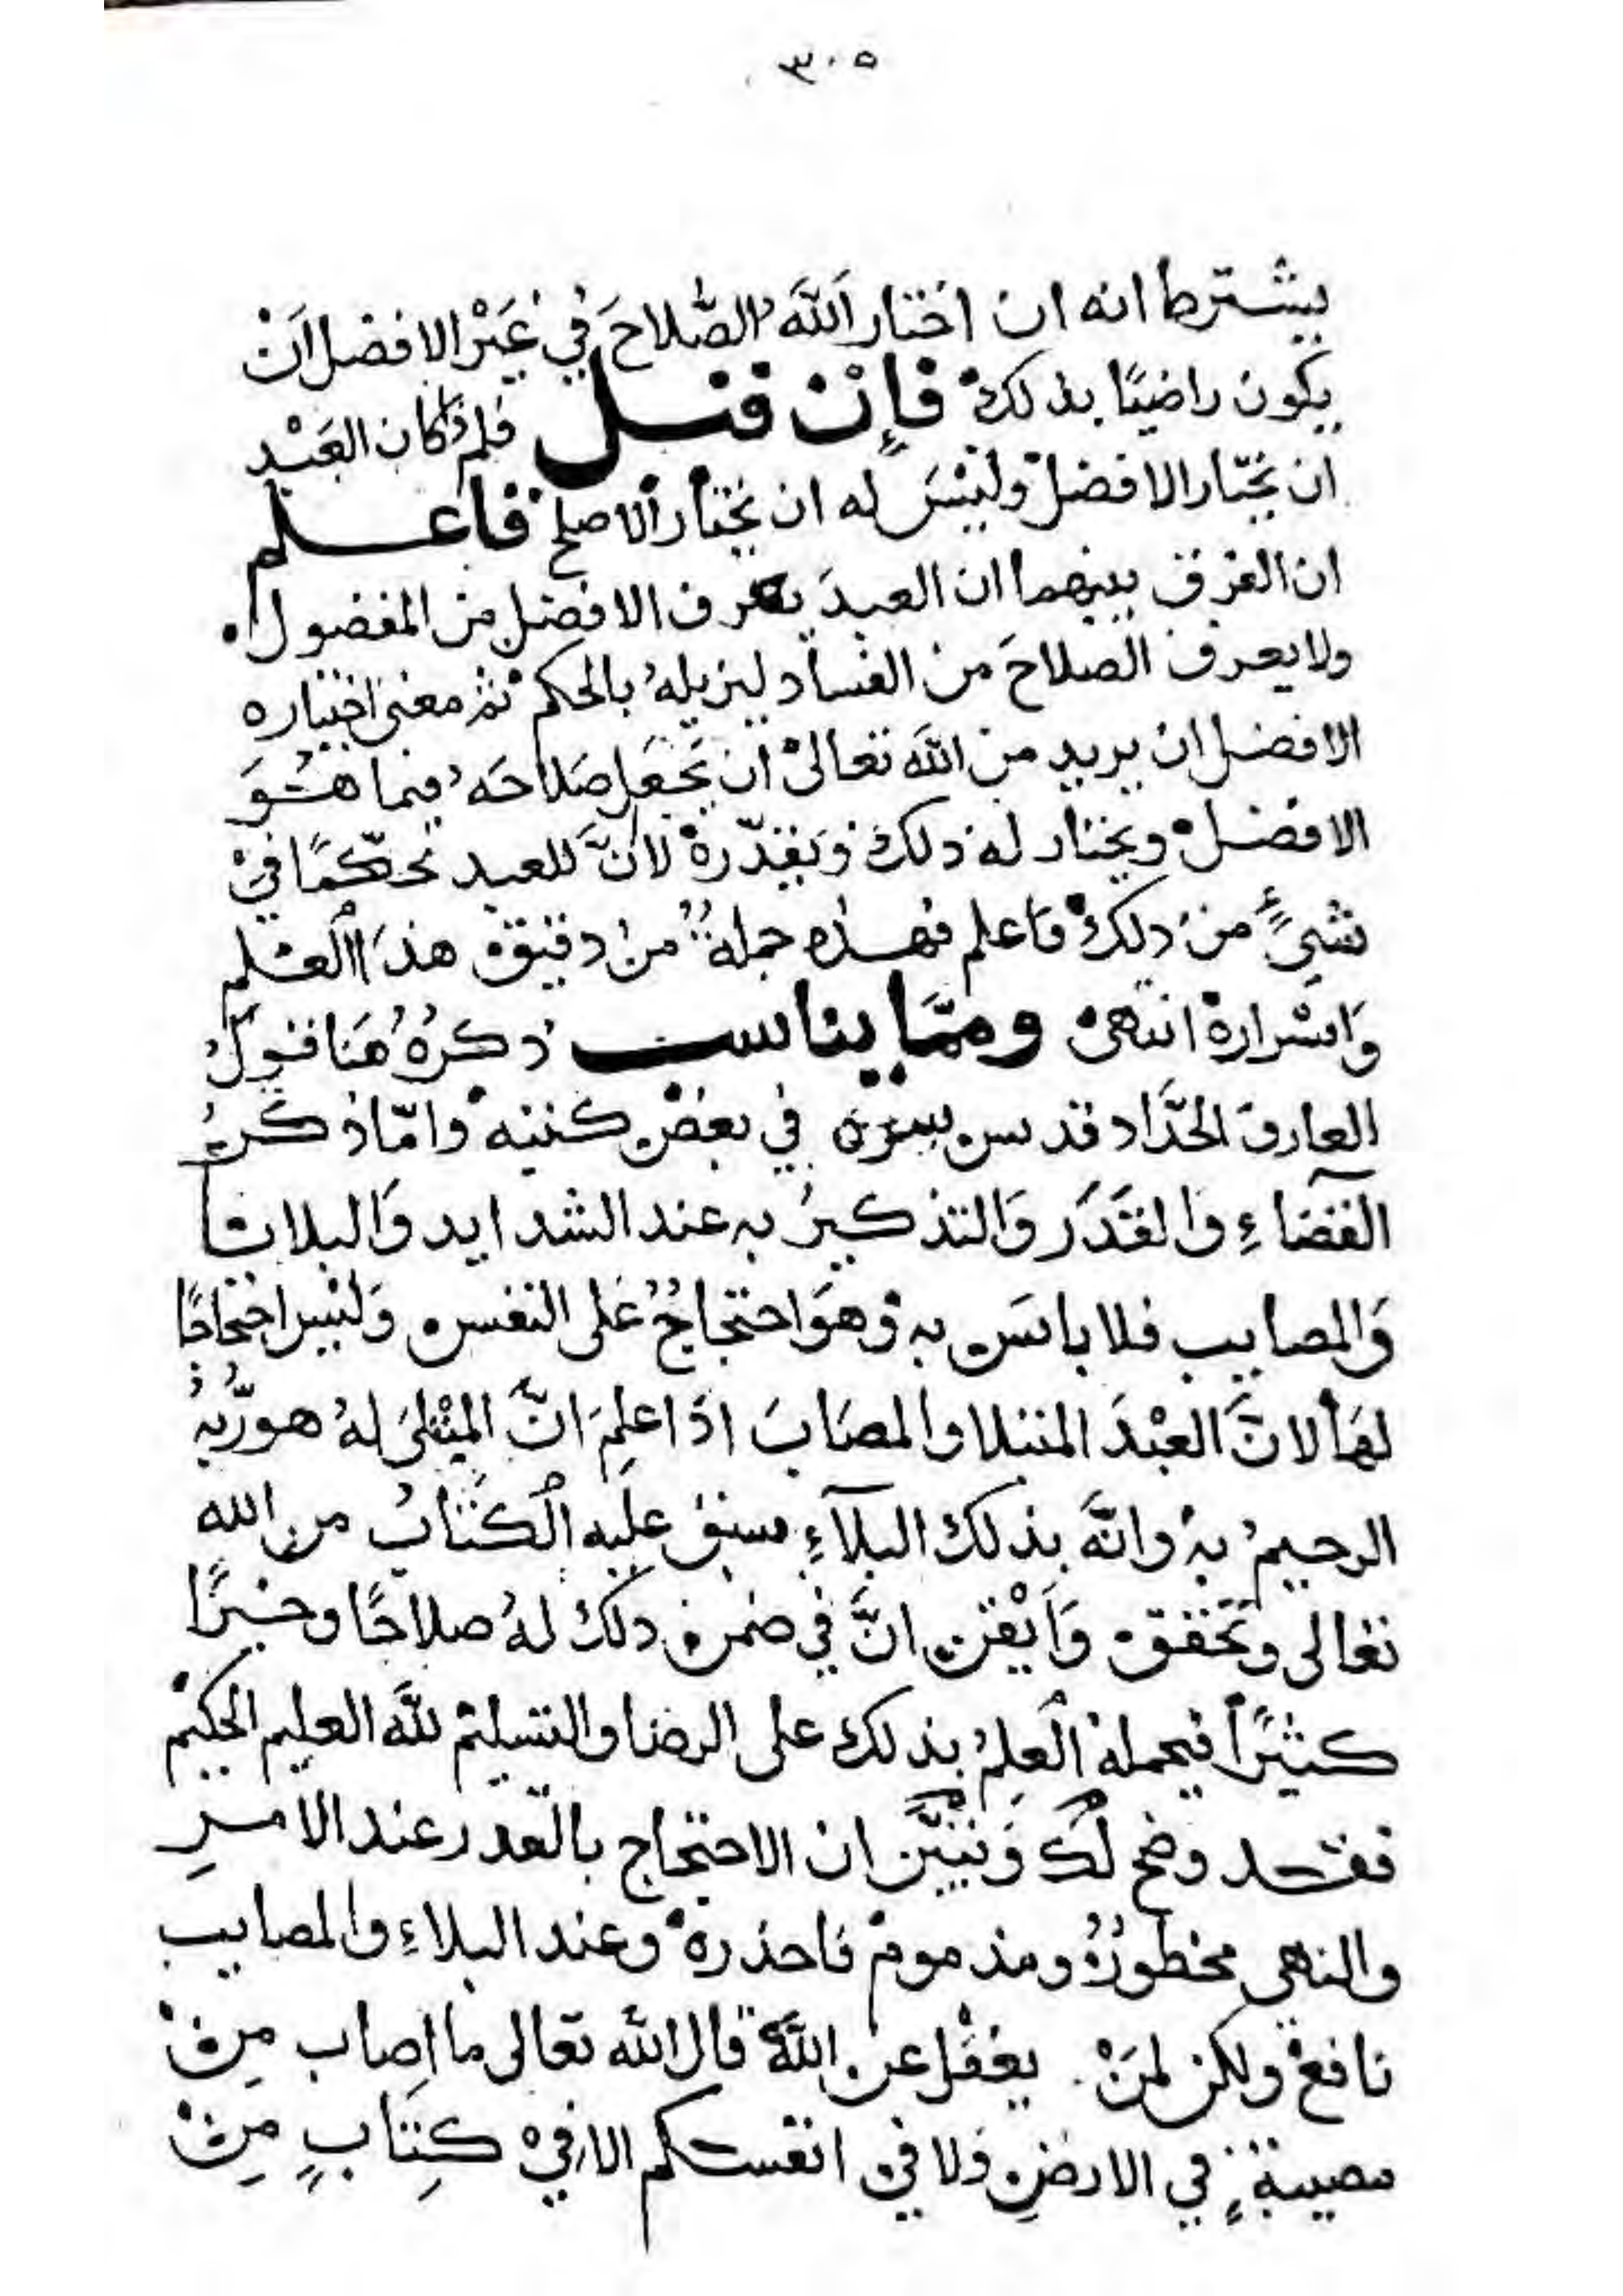 ٣٠٥
يشترط انه ان اختار اللَّهُ الصَّلاحَ في غَيْرِ الافضل اَنْ
يكون راضيًا بذلك فَإِنْ قيل فلم كان العَبْد
ان يختار الافضل وليْسَ له ان يختار الاصلح فاعلم
ان الفرق بينهما ان العبدَ يعرف الافضل من المفضول
ولا يعرف الصلاحَ من الفساد ليزيلهُ بالحكم ثم معنى اختياره
الافضل ان يريد من اللَّه تعالى ان يَجْعَل صَلاحَه فيما هُوَ
الافضل ويختار له ذلك وَيقدّره لا انَّ للعبد تحكّمًا في
شيءٍ من ذلك فاعلم فهذه جملةٌ من دقيق هذا العلم
وَاسْراره انتهى وممَّا يناسب ذكرُهُ هُنَا قولُ
العارف الحَدَّاد قدس سره في بعض كتبه وامّا ذكرُ
القضَاءِ والقَدَر وَالتذكيرُ به عند الشدايد وَالبلايا
وَالمصايب فلا باسَ به وهوَ احتجاجٌ عَلى النفس وَليس احتجاجًا
لهَا لانَّ العَبْدَ المبتلا والمصَابَ اذَا علِمَ انَّ المبْتلىَ لهُ هو ربُّهُ
الرحيمُ به وانَّه بذلك البلآءِ سبق عليه الكتَابُ من الله
تعالى وتحققه وَاَيْقن انَّ في ضمن ذلك لهُ صلاحًا وخيرًا
كثيرًا فيحمله العلمُ بذلك على الرضا والتسليم للَّه العليم الحكيم
فقد وضح لك وَتبيَّن ان الاحتجاج بالقدر عند الامرِ
والنهى محظورٌ ومذموم فاحذره وعند البلاءِ والمصايب
نافع ولكن لمَنْ يعْقل عن اللَّه قال اللَّه تعالى ما اصاب مِنْ
مصيبةٍ في الارضِ وَلا في انفسكم الا في كِتَابٍ مِنْ